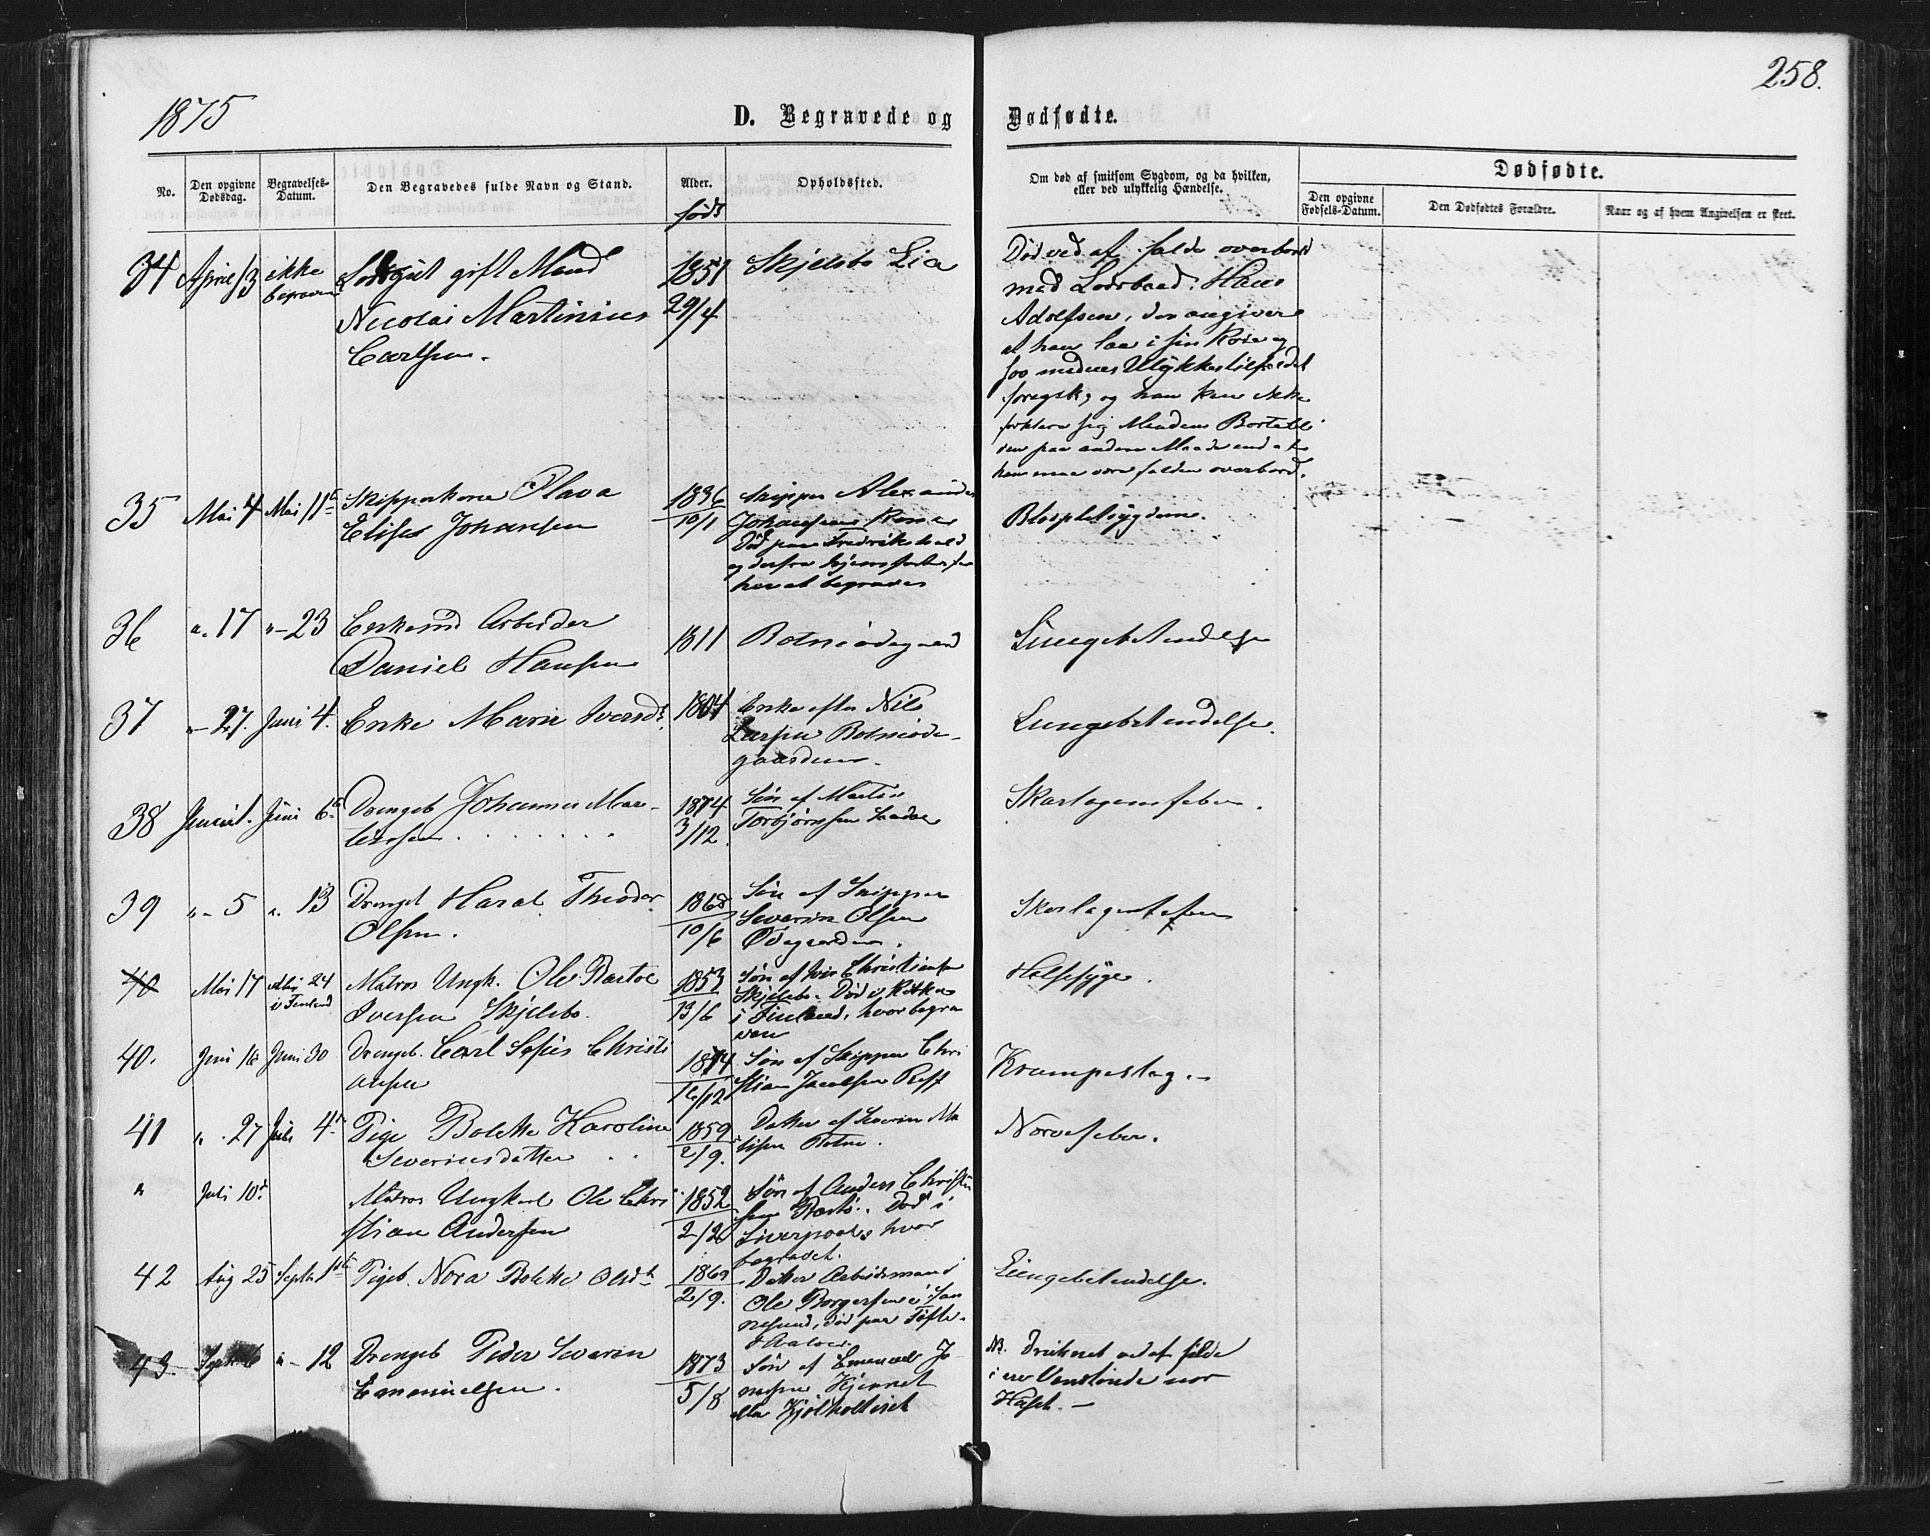 258.
1875
D. Begravede og Dødfødte.
No.
Den opgivne Dødsdag.
Begravelses-Datum.
Den Begravedes fulde Navn og Stand.
Alder.
født
Opholdssted.
Om død af smitsom Sygdom, og da hvilken,
eller ved ulykkelig Hændelse.
Dødfødte.
Den opgivne Fødsels-Datum.
Den Dødfødtes Forældre.
Naar og af hvem Angivelsen er skeet.
34 April 13 ikke begraven
gift Mand
Nicolai Martinius
Carlsen.
1851
29/4
Skjelsbo Lia
Død ved at falde overbord
med Lodsbaad. Hans
Adolfsen, der angiver
at han laa i sin Køie og
sov medens Ulykkestilfældet
foregik, og han kan ikke
forklare sig Mandens Bortebli
ven paa anden Maade end at
han maa være falden overbord.
35 Mai 4 Mai 11te
Skipperkone Olava
Elise Johansen
1836
10/1
Skipper Alexander
Johansens Kone
Død paa Fredrikshald
og derfra hjemført for
her at begraves
36 " 17 "-23
Enkemd Arbeider
Daniel Hansen
1811
Botnerødegaard
Lungebetændelse
37 "-27. Juni 4.
Enke Marie Iversdt.
1804
Enke efter Nils
Larsen Botnerøde-
gaarden.
Lungebetændelse.
38 Juni 1. Juni 6te
Drengeb Johannes Mar-
tinsen
1874
3/12
Søn af Martin
Torbjørnsen
Skarlagensfeber.
39 "- 5 ". 13
Drengeb Haral Theodor
Olsen.
1868
10/6
Søn af Skipper
Severin Olsen
Ødegaarden.
Skarlagensfeber
40 Mai 17 Mai 24
i Finland
Matros Ungk. Ole Bastoe
Iversen Skjelsbo.
1853
13/6
Søn af Iver Christiansen
Skjelsbo. Død i Kotka
i Finland, hvor begra
ven
Halssyge.
40. Juni 16 Juni 30
Drengeb. Carl Sofus Christi
ansen
1874
16/12
Søn af Skipper Chri
stian Jacobsen Røff
Krampeslag.-
41 ". 27 Juli 4de
Pige Bolette Karoline
Severinsdatter
1859
2/9.
Datter af Severin Ma
tisen Botne.
Nervefeber.
" Juli 10de
Matros Ungkarl Ole Chri
stian Andersen
1852
2/2
Søn af Anders Christian
sen Bastø. Død i
Liverpool, hvor
begravet.
42 Aug 25 Septbr 1ste
Pigeb. Nora Bolette Olsdtr
1869
2/9.
Datter Arbeidsmand
Ole Borgersen i San
nesund, død paa Tofte-
Lungebetændelse.
43. Septbr 6 "-12
Drengeb Peder Severin
Emanuelsen.
1873
5/8
Søn af Emanuel Jo
nassen Kjennet
eller Kjølholtviset
NB. Druknet ved at falde
i en Vandtønde ved
Huset.-